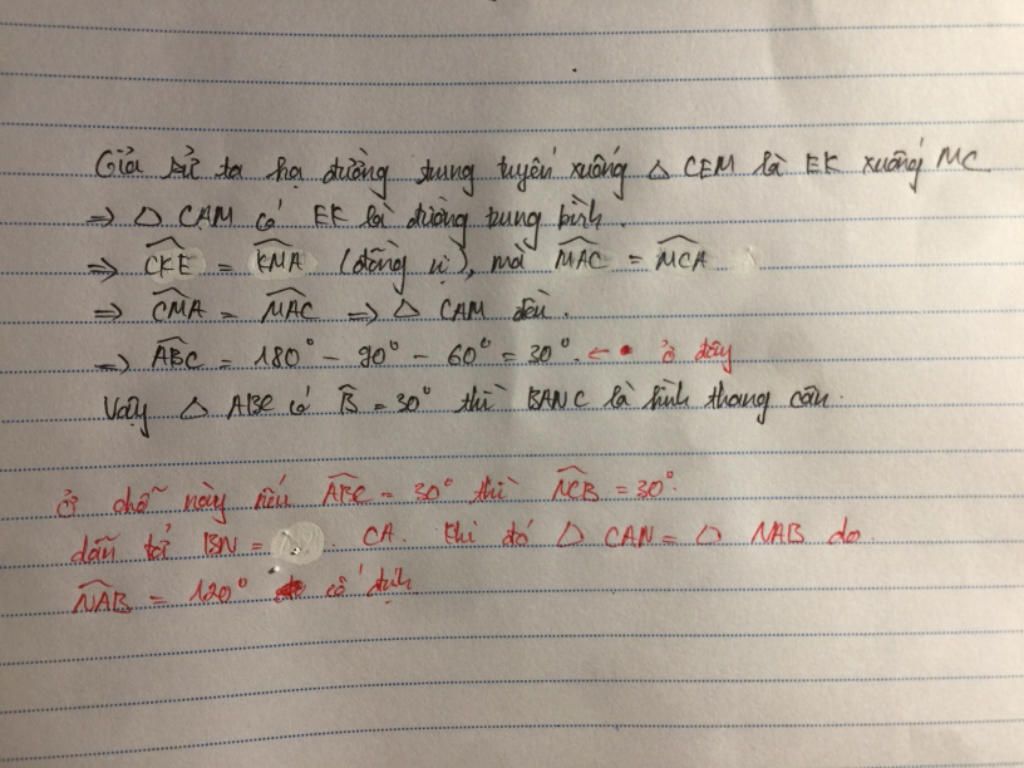 Giả sử ta hạ đường trung tuyến xuống △ CEM là EK xuống MC
⇒ △ CAM có EK là đường trung bình.
⇒ \widehat{CKE} = \widehat{KMA} (đồng vị), mà \widehat{MAC} = \widehat{MCA}
⇒ \widehat{CMA} = \widehat{MAC} ⇒ △ CAM đều.
⇒ \widehat{ABC} = 180° - 90° - 60° = 30°. ← • ở đây
Vậy △ ABC có \widehat{B} = 30° thì BANC là hình thang cân.
Ở chỗ này nếu \widehat{ABC} = 30° thì \widehat{NCB} = 30°.
dẫn tới BN = CA. Khi đó △ CAN = △ NAB do
\widehat{NAB} = 120° cố định